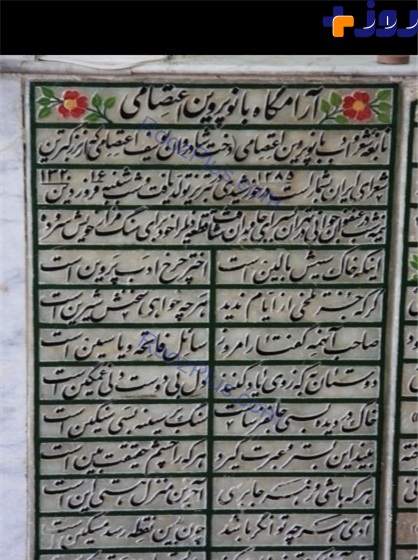 روز+
آرامگاه بانو پروین اعتصامی
نابغه شعر و ادب بانو پروین اعتصامی دخت شادروان یوسف اعتصامی که از بزرگترین
شعرای ایران بشمار است ۱۲۸۵ خورشیدی تبریز تولد یافت و شب شنبه ۱۶ فروردین ۱۳۲۰
اینکه خاک سیهش بالین است اختر چرخ ادب پروین است
گرچه جز تلخی از ایام ندید هر چه خواهی سخنش شیرین است
صاحب آنهمه گفتار امروز سائل فاتحه و یاسین است
دوستان به که ز وی یاد کنند دل بی دوست دلی غمگین است
خاک در دیده بسی جان فرساست سنگ بر سینه بسی سنگین است
بیند این بستر و عبرت گیرد هر که را چشم حقیقت بین است
هر که باشی و ز هر جا برسی آخرین منزل هستی این است
آدمی هر چه توانگر باشد چون بدین نقطه رسد مسکین است